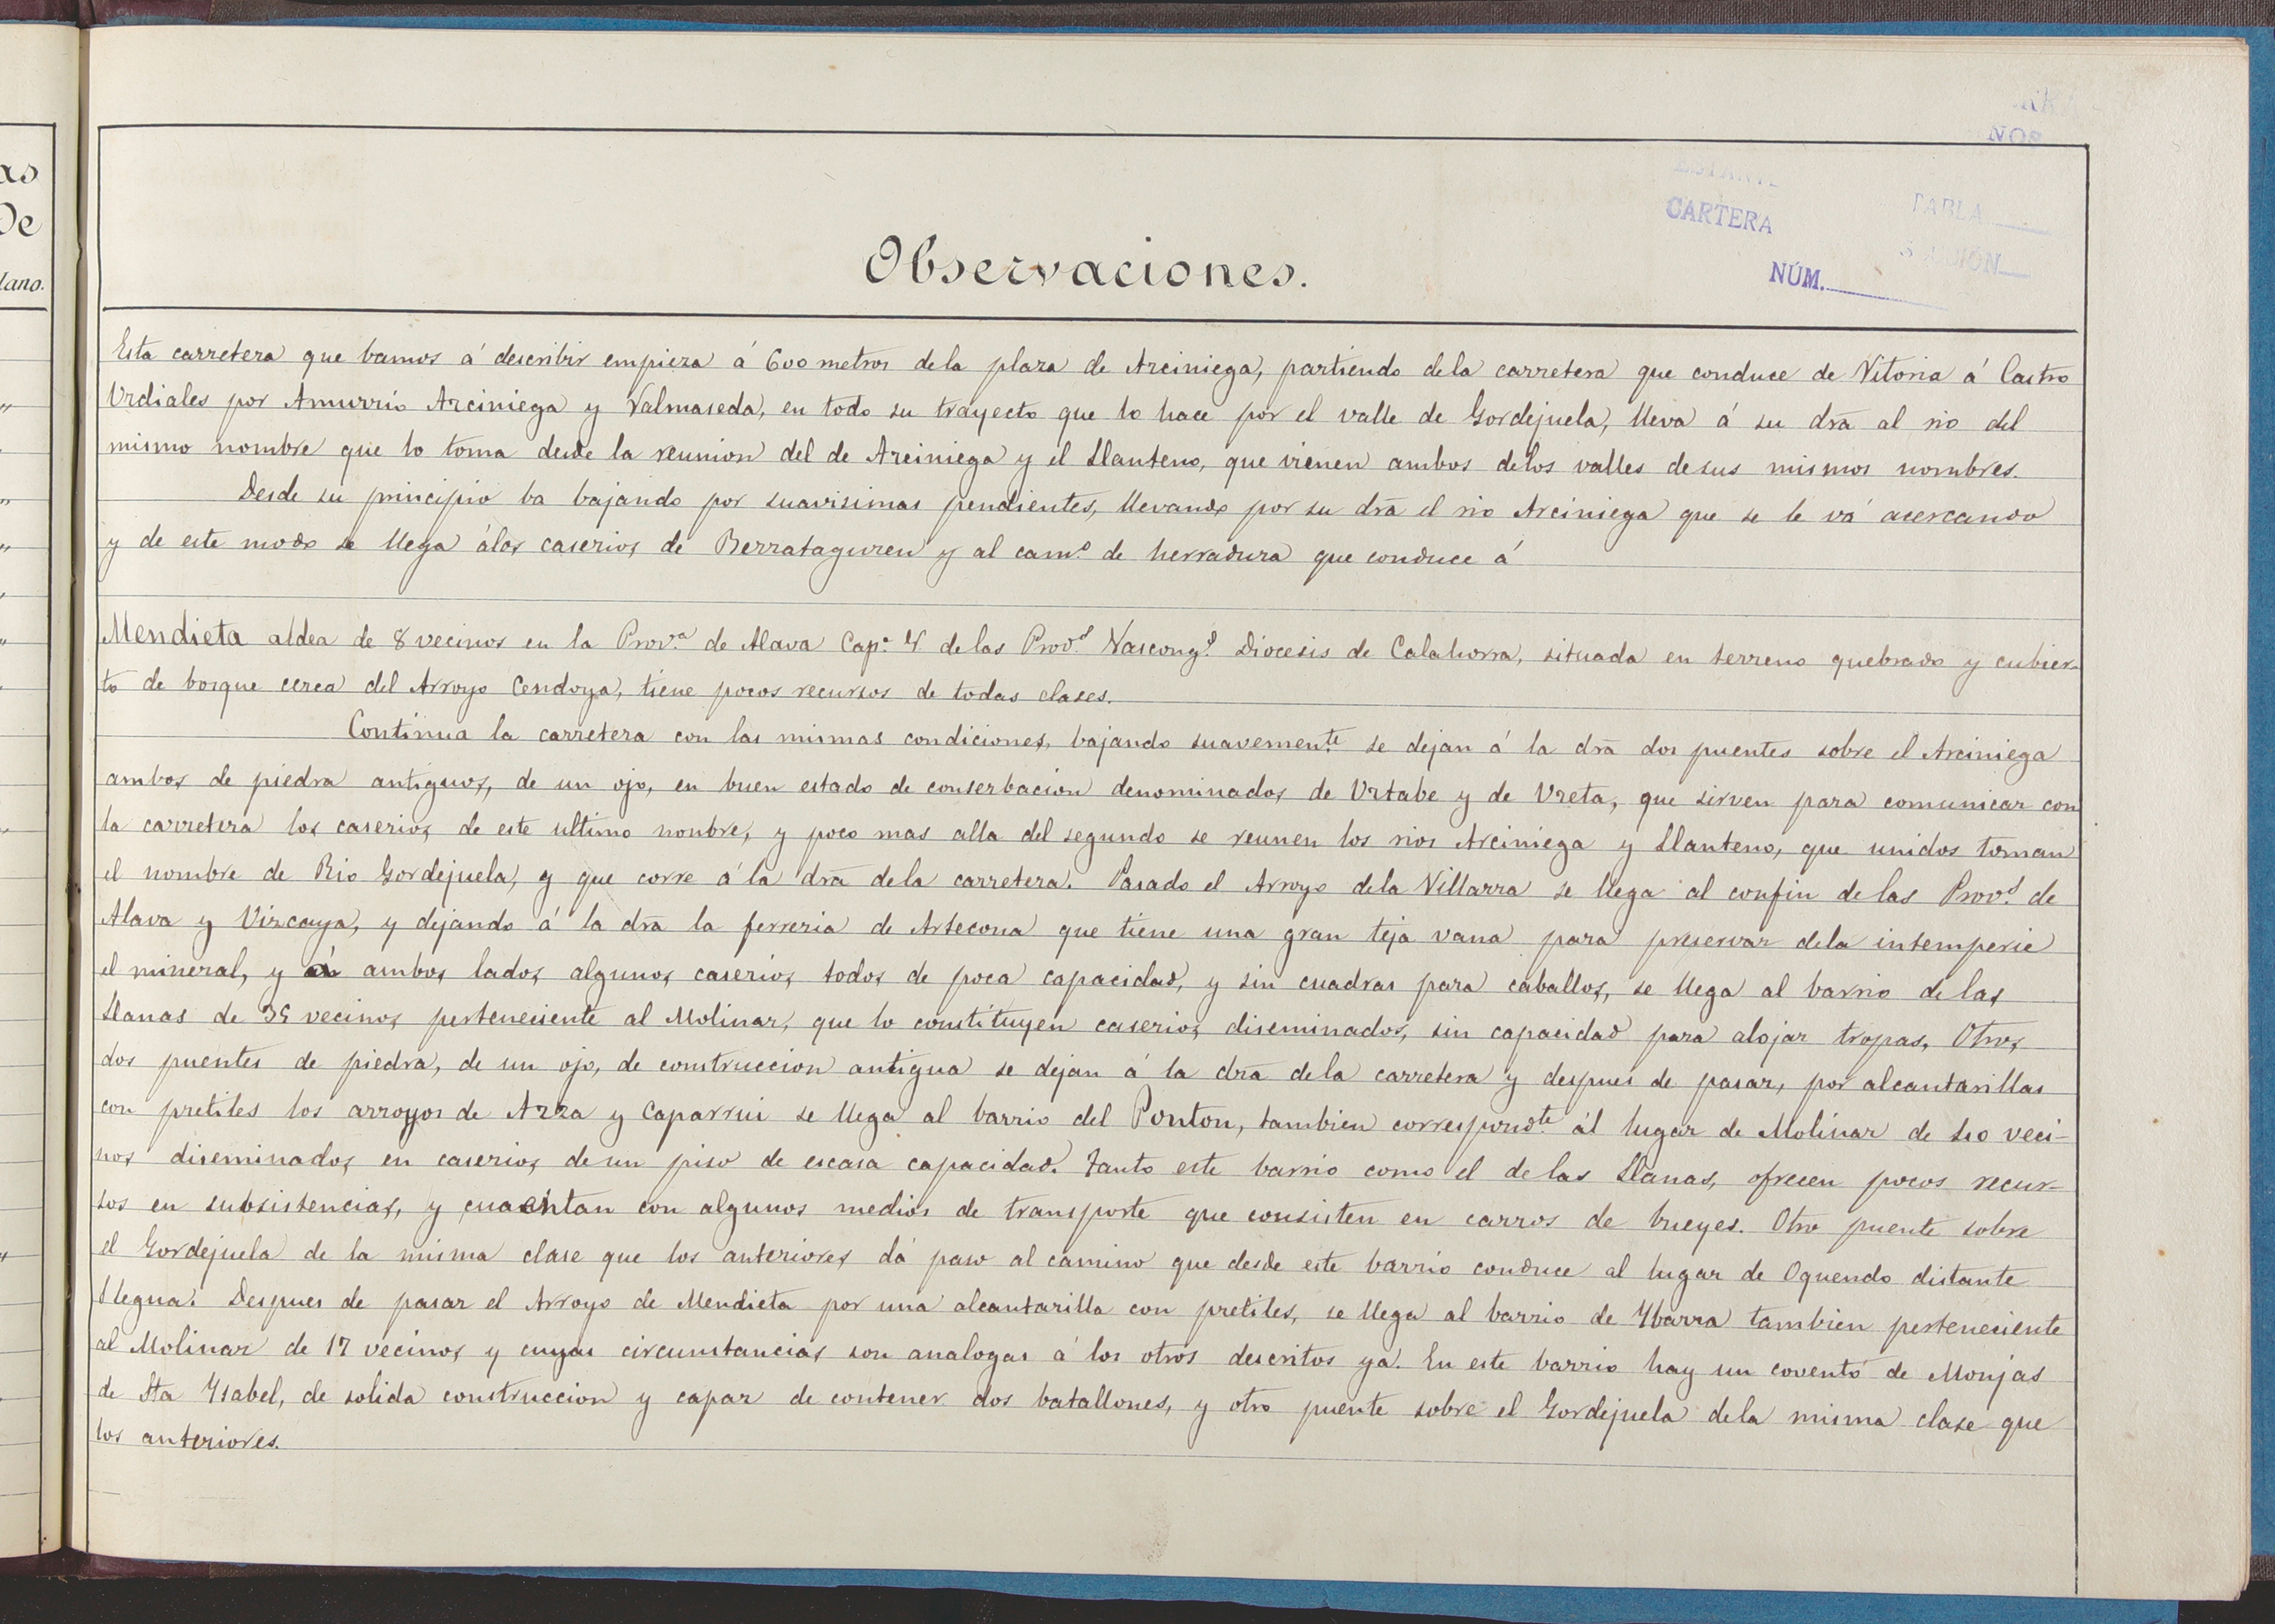 as
De
lano.
CARTERA
TABLA
NÚM.
Observaciones.
Esta carretera que bamos á describir empieza á 600 metros dela plaza de Arciniega, partiendo dela carretera que conduce de Vitoria á Castro
Urdiales por Amurrio Arciniega y Valmaseda, en todo su trayecto que lo hace por el valle de Gordejuela, lleva á su dra al rio del
mismo nombre que lo toma desde la reunion del de Arciniega y el Llanteno, que vienen ambos delos valles desus mismos nombres.
Desde su principio ba bajando por suavisimas pendientes, llevando por su dra el rio Arciniega que se le vá acercando
y de este modo se llega álos caserios de Berrataguren y al camo. de herradura que conduce á
Mendieta aldea de 8 vecinos en la Prova. de Alava Capa. G. delas Provs. Vascongs. Diocesis de Calahorra, situada en terreno quebrado y cubier-
to de bosque cerca del Arroyo Cendoya, tiene pocos recursos de todas clases.
Continua la carretera con las mismas condiciones, bajando suavemente. se dejan á la dra dos puentes sobre el Arciniega
ambos de piedra antiguos, de un ojo, en buen estado de conserbacion denominados de Urtabe y de Ureta, que sirven para comunicar con
la carretera los caserios de este ultimo nonbre, y poco mas alla del segundo se reunen los rios Arciniega y Llanteno, que unidos toman
el nombre de Rio Gordejuela, y que corre á la dra dela carretera. Pasado el Arroyo dela Villarra se llega al confin de las Provs. de
Alava y Vizcaya, y dejando á la dra la ferreria de Artecona que tiene una gran teja vana para preservar dela intemperie
el mineral, y á ambos lados algunos caserios todos de poca capacidad, y sin cuadras para caballos, se llega al barrio de las
Llanas de 39 vecinos perteneciente al Molinar, que lo constituyen caserios diseminados, sin capacidad para alojar tropas. Otros
dos puentes de piedra, de un ojo, de construccion antigua se dejan á la dra dela carretera y despues de pasar, por alcantarillas
con pretiles los arroyos de Azza y Caparrui se llega al barrio del Ponton, tambien correspondte. ál lugar de Molinar de veci-
nos diseminados en caserios de un piso de escasa capacidad. Tanto este barrio como el de las Llanas, ofrecen pocos recur-
sos en subsistencias, y cuentan con algunos medios de transporte que consisten en carros de bueyes. Otro puente sobre
el Gordejuela de la misma clase que los anteriores dá paso al camino que desde este barrio conduce al lugar de Oquendo distante
1 legua. Despues de pasar el Arroyo de Mendieta por una alcantarilla con pretiles, se llega al barrio de Ybarra tambien perteneciente
al Molinar de 17 vecinos y cuyas circunstancias son analogas á los otros descritos ya. En este barrio hay un covento de Monjas
de Sta Ysabel, de solida construccion y capaz de contener dos batallones, y otro puente sobre el Gordejuela dela misma clase que
los anteriores.